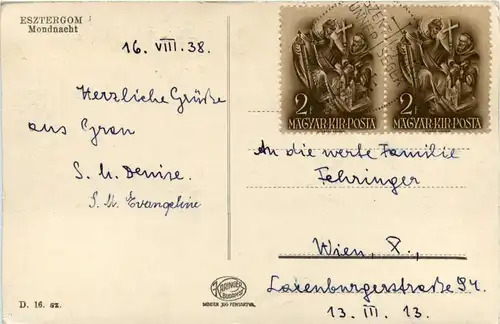 ESZTERGOM
Mondnacht
16. VIII. 38.
Herzliche Grüße
aus Gran
S. M. Denise.
S. M. Evangeline
2f
MAGYAR·KIR·POSTA
2f
MAGYAR·KIR·POSTA
An die werte Familie
Fehringer
Wien, X.,
Laxenburgerstraße 94.
13. III. 13.
KARINGER
BUDAPEST
D. 16. sz.